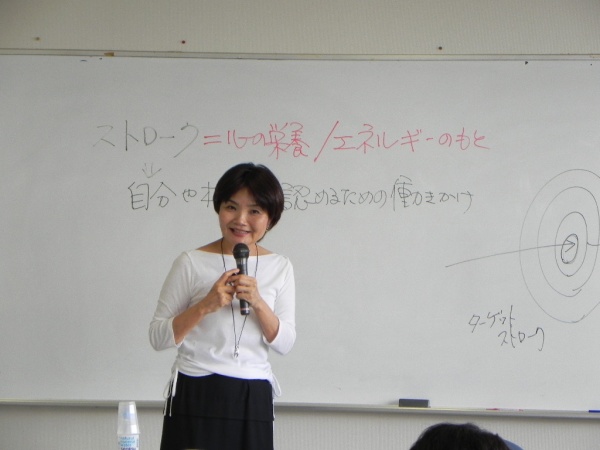 ストローク=心の栄養/エネルギーのもと
自分や 認めるための働きかけ
ターゲット
ストローク